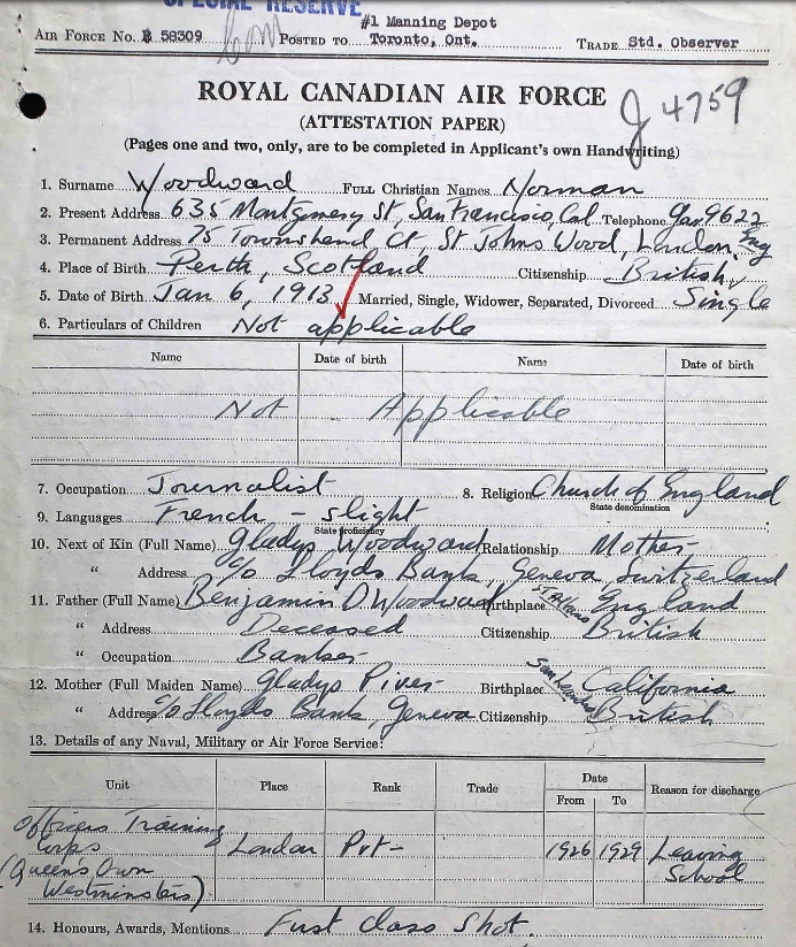 SPECIAL RESERVE
#1 Manning Depot
AIR FORCE No. 58309 POSTED TO Toronto, Ont. TRADE Std. Observer
ROYAL CANADIAN AIR FORCE
J 4759
(ATTESTATION PAPER)
(Pages one and two, only, are to be completed in Applicant's own Handwriting)
1. Surname Woodward FULL Christian Names Norman
2. Present Address 635 Montgomery St, San Francisco, Cal Telephone Gar 9622
3. Permanent Address 75 Townshend Ct, St Johns Wood, London, Eng
4. Place of Birth Perth, Scotland Citizenship British
5. Date of Birth Jan 6, 1913 Married, Single, Widower, Separated, Divorced Single
6. Particulars of Children Not applicable
Name Date of birth Name Date of birth
Not Applicable
7. Occupation Journalist 8. Religion Church of England
State denomination
9. Languages French - slight
State proficiency
10. Next of Kin (Full Name) Gladys Woodward Relationship Mother
" Address c/o Lloyds Bank, Geneva, Switzerland
11. Father (Full Name) Benjamin D. Woodward Birthplace England
" Address Deceased Citizenship British
" Occupation Banker
12. Mother (Full Maiden Name) Gladys Birthplace California
" Address c/o Lloyds Bank, Geneva Citizenship British
13. Details of any Naval, Military or Air Force Service:
Unit Place Rank Trade Date Reason for discharge
From To
Officers Training
Corps London Pvt- 1926 1929 Leaving
(Queen's Own School
Westminsters)
14. Honours, Awards, Mentions First class shot.